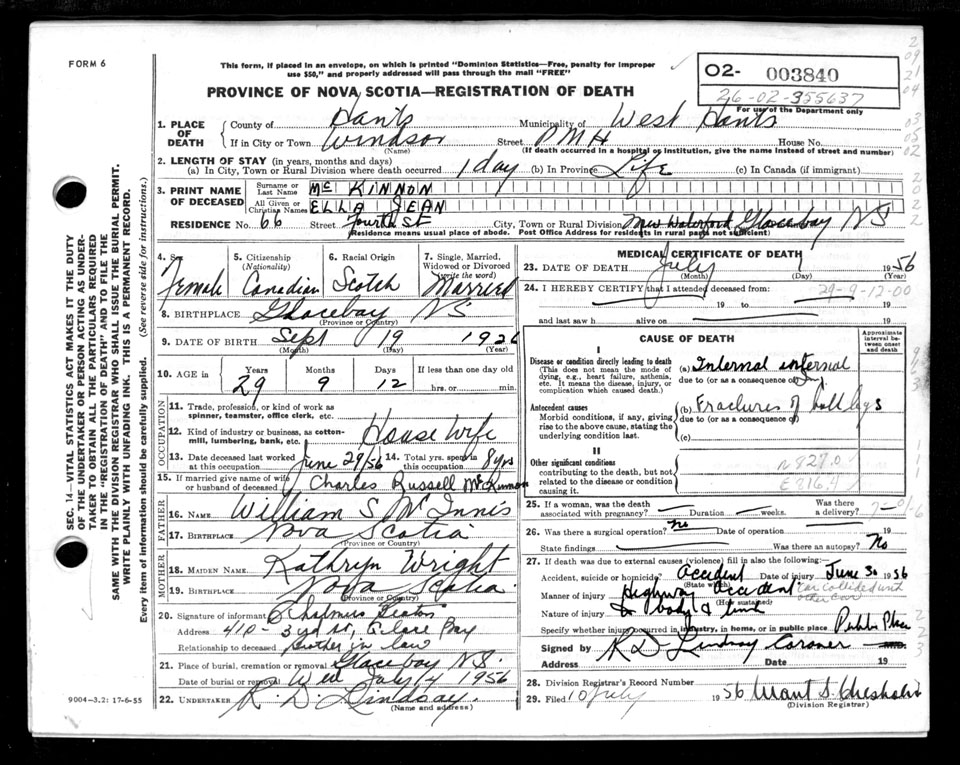 FORM 6
This form, if placed in an envelope, on which is printed "Dominion Statistics—Free, penalty for improper
use $50," and properly addressed will pass through the mail "FREE"
02- 003840
26-02-355637
For use of the Department only
PROVINCE OF NOVA SCOTIA—REGISTRATION OF DEATH
1. PLACE OF DEATH
County of Hants Municipality of West Hants
If in City or Town Windsor Street P M H House No.
(Name) (If death occurred in a hospital or institution, give the name instead of street and number)
2. LENGTH OF STAY (in years, months and days)
(a) In City, Town or Rural Division where death occurred 1 day (b) In Province Life (c) In Canada (if immigrant)
3. PRINT NAME OF DECEASED
Surname or Last Name Mc KINNON
All Given or Christian Names ELLA JEAN
RESIDENCE No. 66 Street Fourth St City, Town or Rural Division New Waterford Glacebay NS
(Residence means usual place of abode. Post Office Address for residents in rural parts not sufficient)
4. Sex Female
5. Citizenship (Nationality) Canadian
6. Racial Origin Scotch
7. Single, Married, Widowed or Divorced (write the word) Married
8. BIRTHPLACE Glacebay NS
(Province or Country)
9. DATE OF BIRTH Sept 19 1926
(Month) (Day) (Year)
10. AGE in Years Months Days If less than one day old
29 9 12 hrs. or min.
OCCUPATION
11. Trade, profession, or kind of work as
spinner, teamster, office clerk, etc.
12. Kind of industry or business, as cotton-
mill, lumbering, bank, etc. House Wife
13. Date deceased last worked at this occupation June 29/56
14. Total yrs. spent in this occupation 8 yrs
15. If married give name of wife
or husband of deceased Charles Russell McKinnon
FATHER
16. NAME William S McInnis
17. BIRTHPLACE Nova Scotia
(Province or Country)
MOTHER
18. MAIDEN NAME Kathryn Wright
19. BIRTHPLACE Nova Scotia
(Province or Country)
20. Signature of informant Chalmers
Address 410- 3rd St, Glace Bay
Relationship to deceased Brother in law
21. Place of burial, cremation or removal Glacebay N.S.
Date of burial or removal Wed July 4 1956
22. UNDERTAKER K. D. Lindsay
(Name and address)
MEDICAL CERTIFICATE OF DEATH
23. DATE OF DEATH July 1956
(Month) (Day) (Year)
24. I HEREBY CERTIFY that I attended deceased from:
29-9-12-00
19 to 19
and last saw h alive on 19
CAUSE OF DEATH
Approximate interval between onset and death
I
Disease or condition directly leading to death
(This does not mean the mode of
dying, e.g., heart failure, asthenia,
etc. It means the disease, injury, or
complication which caused death.)
(a) Internal
due to (or as a consequence of) Inj.
Antecedent causes
Morbid conditions, if any, giving
rise to the above cause, stating the
underlying condition last.
(b) Fractures of both legs
due to (or as a consequence of)
(c)
II
Other significant conditions
contributing to the death, but not
related to the disease or condition
causing it.
N827.0
E816.4
25. If a woman, was the death
associated with pregnancy? Duration weeks. Was there a delivery?
26. Was there a surgical operation? no Date of operation
State findings Was there an autopsy? No
27. If death was due to external causes (violence) fill in also the following:
Accident, suicide or homicide? accident Date of injury June 30 1956
(State which)
Manner of injury Highway accident Car Collided with other Car
(How sustained)
Nature of injury body &
Specify whether injury occurred in industry, in home, or in public place Public Place
Signed by K D Lindsay Coroner
Address Date 19
28. Division Registrar's Record Number
29. Filed 10 July 1956 Grant S. Chisholm
(Division Registrar)
9004-3.2: 17-6-55
SEC. 14—VITAL STATISTICS ACT MAKES IT THE DUTY
OF THE UNDERTAKER OR PERSON ACTING AS UNDER-
TAKER TO OBTAIN ALL THE PARTICULARS REQUIRED
IN THE "REGISTRATION OF DEATH" AND TO FILE THE
SAME WITH THE DIVISION REGISTRAR WHO SHALL ISSUE THE BURIAL PERMIT.
WRITE PLAINLY WITH UNFADING INK. THIS IS A PERMANENT RECORD.
Every item of information should be carefully supplied. (See reverse side for instructions.)